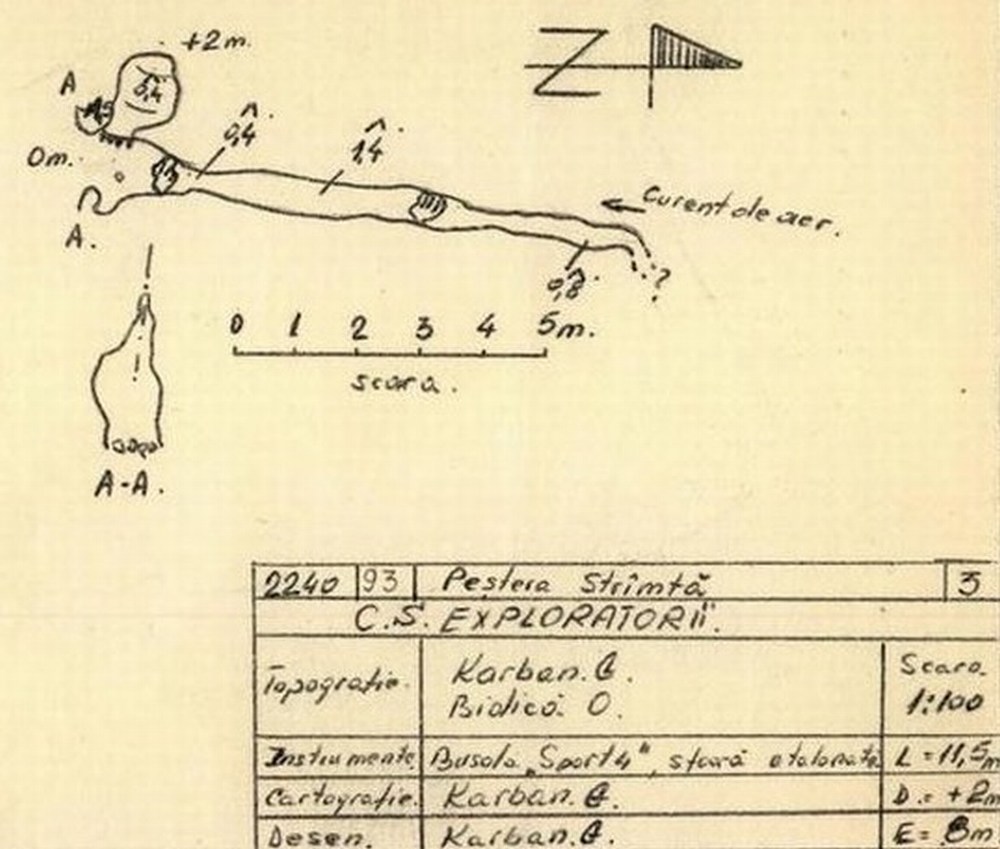 +2m.
A
0,4
1,4
Om.
A.
Curent de aer.
0,8
?
0 1 2 3 4 5m.
scara.
A-A.
2240 93 Peștera Strîmtă 3
C.S. EXPLORATORII".
Topografie. Karban. G. Scara.
Bidică. O. 1:100
Instrumente. Busola „Sport4", sfoară etalonată L = 11,5m
Cartografie. Karban. G. D. = +2m
Desen. Karban. G. E = 8m